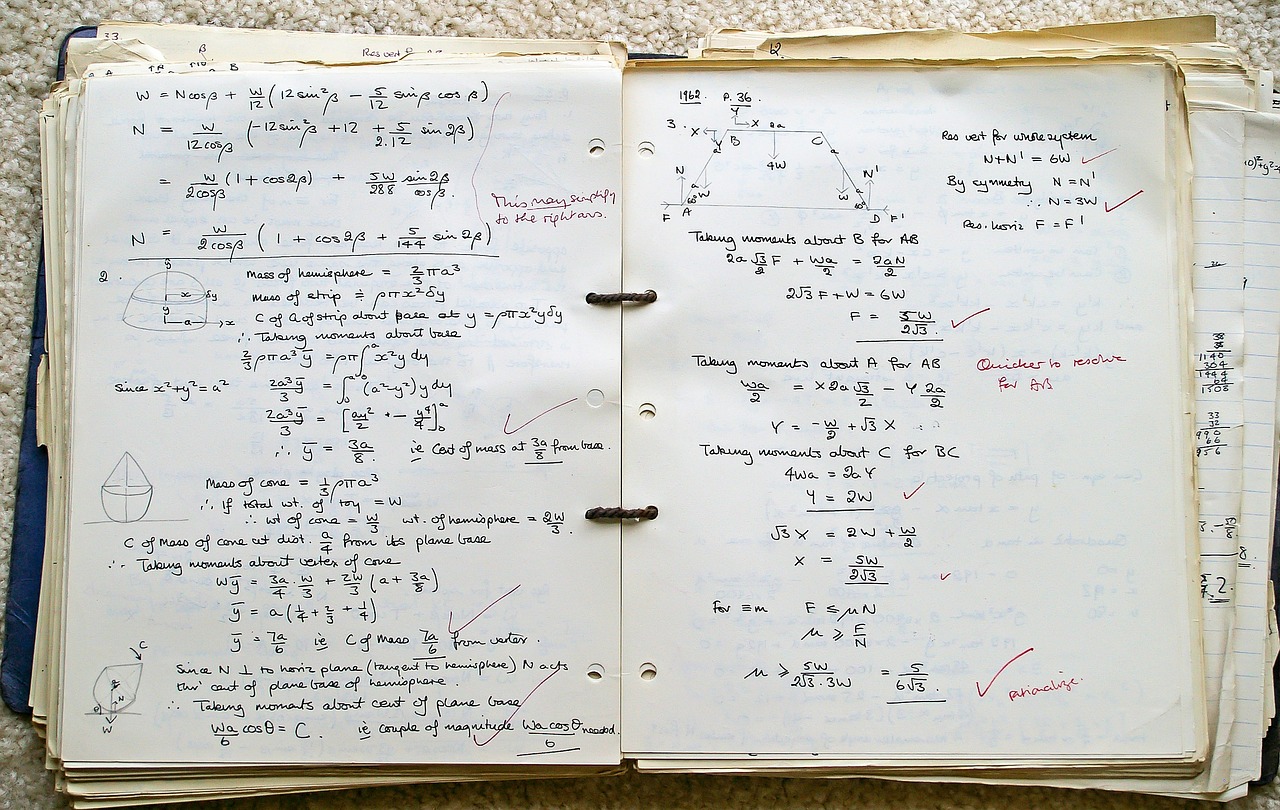 33.
β
Res vert
B
W = Ncosβ + W/12 (12 sin²β − 5/12 sinβ cosβ)
N = W/12cosβ (−12sin²β + 12 + 5/2.12 sin 2β)
= W/2cosβ (1 + cos2β) + 5W/288 sin2β/cosβ.
This may simplify
to the right ans.
N = W/2cosβ (1 + cos 2β + 5/144 sin 2β)
2.
y
x δy
y
a x
Mass of hemisphere = 2/3 πa³
Mass of strip ≑ ρπx²δy
C of G of strip about base at y = ρπx²yδy
∴ Taking moments about base
2/3 ρπa³ȳ = ρπ∫₀ᵃ x²y dy
Since x²+y²=a² 2a³ȳ/3 = ∫₀ᵃ (a²−y²)y dy
2a³ȳ/3 = [ay²/2 − y⁴/4]₀ᵃ
∴ ȳ = 3a/8 ie Cent of mass at 3a/8 from base.
Mass of cone = 1/3 ρπa³
∴ If total wt. of toy = W
∴ wt of cone = W/3 wt. of hemisphere = 2W/3.
C of Mass of cone at dist. a/4 from its plane base
∴ Taking moments about vertex of cone
Wȳ = 3a/4 . W/3 + 2W/3 (a + 3a/8)
ȳ = a(1/4 + 2/3 + 1/4)
ȳ = 7a/6 ie C of Mass 7a/6 from vertex.
C
N
θ
W
Since N ⊥ to horiz plane (tangent to hemisphere) N acts
thro' cent of plane base of hemisphere.
∴ Taking moments about cent of plane base
Wa/6 cosθ = C. ie couple of magnitude Wa cosθ/6 needed.
12.
1962. P. 36.
3.
Y
X 2a
X B C
Y a a
4W
N a a N'
W W
60° 60°
F A D F'
Res vert for whole system
N+N' = 6W
By symmetry N = N'
∴ N = 3W
Res. horiz F = F'
Taking moments about B for AB
2a √3/2 F + Wa/2 = 2aN/2
2√3 F + W = 6W
F = 5W/2√3.
Taking moments about A for AB
Quicker to resolve
for AB
Wa/2 = X 2a √3/2 − Y 2a/2
Y = −W/2 + √3 X
Taking moments about C for BC
4Wa = 2aY
Y = 2W
√3 X = 2W + W/2
X = 5W/2√3
For ≡m F ≤ μN
μ ≥ F/N
μ ≥ 5W/2√3.3W = 5/6√3.
rationalize.
38
38
1140
304
1444
64
1508
33
32
990
66
956